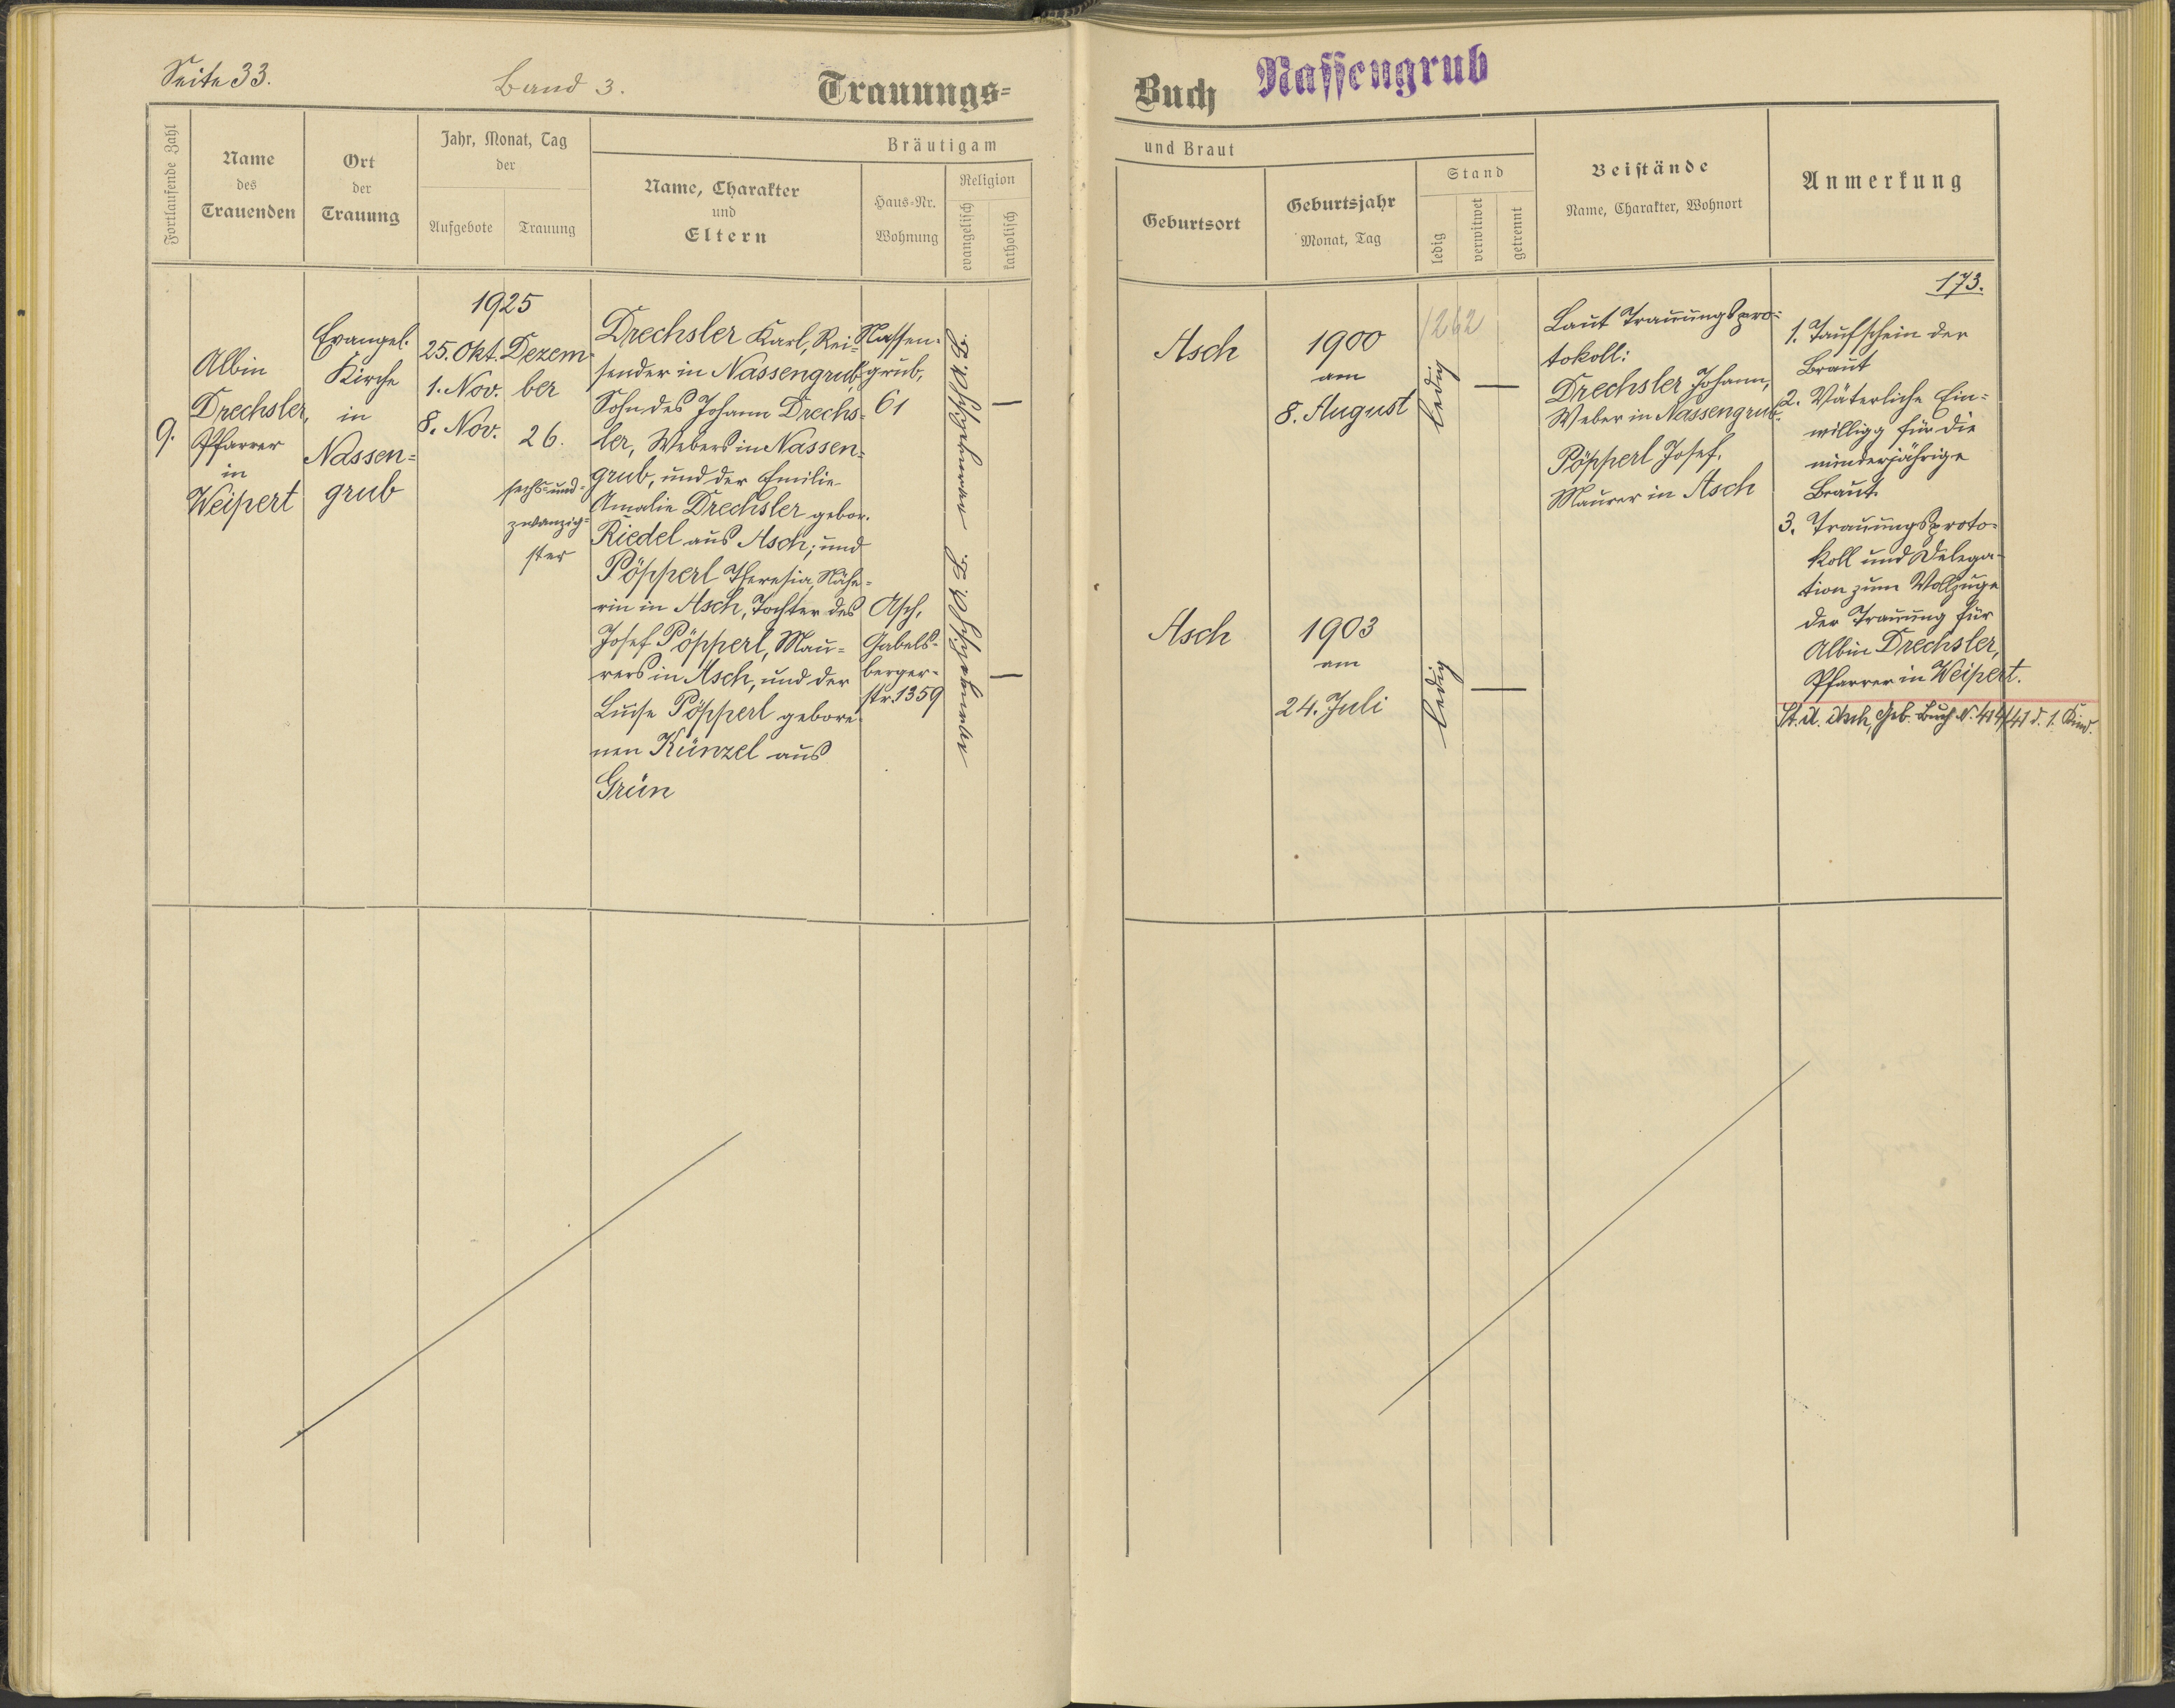 Seite 33.
Band 3.
Trauungs=
Buch
Nassengrub
Fortlaufende Zahl
Name
des
Trauenden
Ort
der
Trauung
Jahr, Monat, Tag
der
Aufgebote
Trauung
Bräutigam
Name, Charakter
und
Eltern
Haus=Nr.
Wohnung
Religion
evangelisch
katholisch
und Braut
Geburtsort
Geburtsjahr
Monat, Tag
Stand
ledig
verwitwet
getrennt
Beistände
Name, Charakter, Wohnort
Anmerkung
9.
Albin
Drechsler,
Pfarrer
in
Weipert
Evangel.
Kirche
in
Nassen=
grub
1925
25. Okt.
1. Nov.
8. Nov.
Dezem=
ber
26.
sechs=und=
zwanzig=
ster
Drechsler Karl, Rei=
sender in Nassengrub,
Sohn des Johann Drechs=
ler, Webers in Nassen=
grub, und der Emilie
Amalie Drechsler gebor.
Riedel aus Asch; und
Pöpperl Theresia, Nähe=
rin in Asch, Tochter des
Josef Pöpperl, Mau=
rers in Asch, und der
Luise Pöpperl gebore=
nen Künzel aus
Grün
Nassen=
grub,
61
Asch,
Gabels=
berger=
str. 1359
evangelisch A. B.
evangelisch A. B.
—
—
Asch
1900
am
8. August
1262
ledig
—
Asch
1903
am
24. Juli
ledig
—
Laut Trauungspro=
tokoll:
Drechsler Johann,
Weber in Nassengrub.
Pöpperl Josef,
Maurer in Asch
173.
1. Taufschein der
Braut
2. Väterliche Ein=
willigg für die
minderjährige
Braut.
3. Trauungsproto=
koll und Delega=
tion zum Vollzuge
der Trauung für
Albin Drechsler,
Pfarrer in Weipert.
St. A. Asch, Geb. Buch N. 414/41 d. 1. Kind.